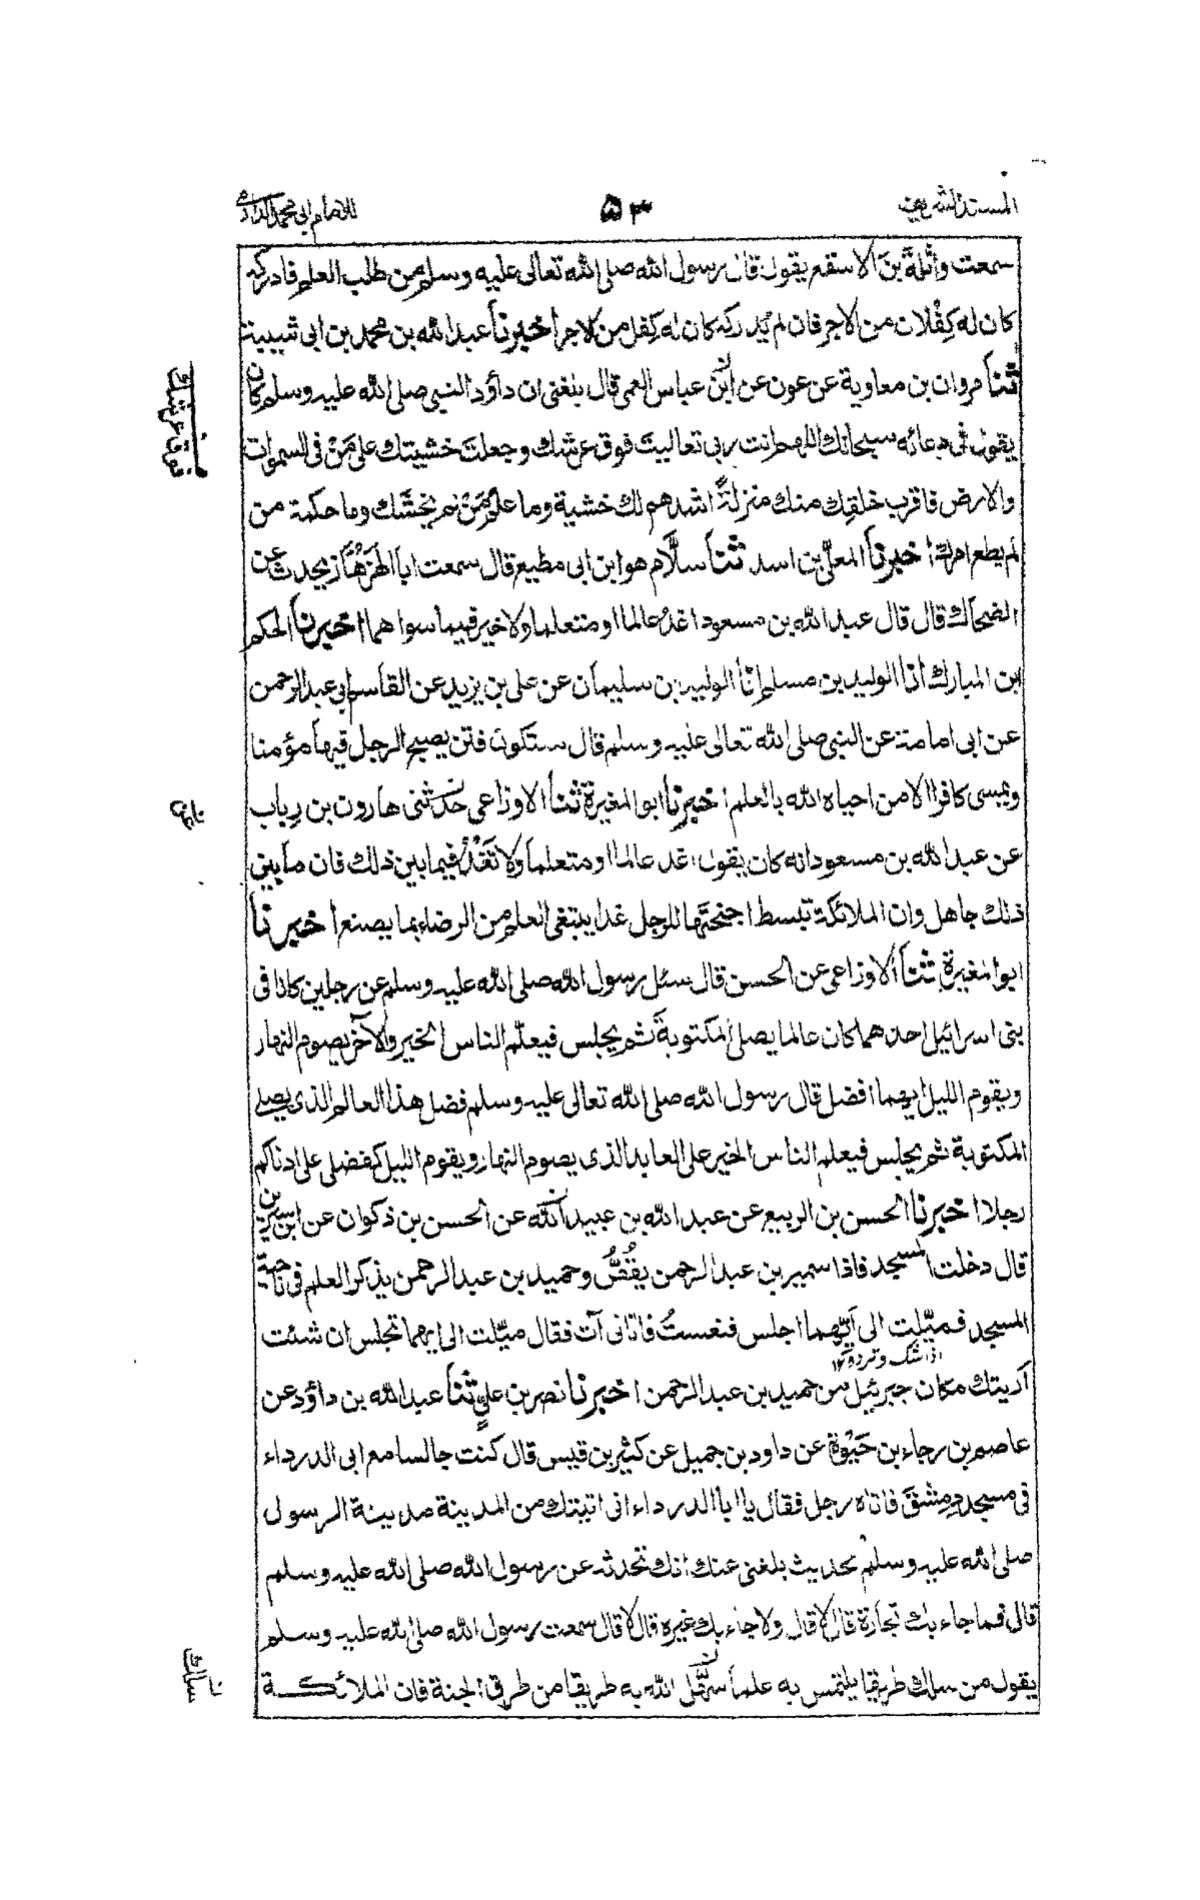 المسند الشريف
٥٣
للامام ابی محمد الدارمی
سمعت واثلة بن الاسقع يقول قال رسول الله صلی الله تعالی علیه وسلم من طلب العلم فادركه
كان له كِفْلان من الاجر فان لم يُدركه كان له كِفل من الاجر اخبرنا عبد الله بن محمد بن ابی شيبة
ثنا مروان بن معاوية عن عون عن ابن عباس العمی قال بلغنی ان داؤد النبی صلی الله عليه وسلم كان
يقول فی دعائه سبحانك اللهم انت ربی تعاليت فوق عرشك وجعلت خشيتك علی مَنْ فی السموات
والارض فاقرب خلقك منك منزلةً اشدهم لك خشية وما علمُ مَنْ لم يخشَك وما حكمة من
لم يطع امرك اخبرنا المعلی بن اسد ثنا سلّام هو ابن ابی مطيع قال سمعت ابا الهَزْهَاز يحدث عن
الضحاك قال قال عبد الله بن مسعود اغدُ عالما او متعلما ولا خير فيما سواهما اخبرنا الحكم
ابن المبارك انا الوليد بن مسلم انا الوليد بن سليمان عن علی بن يزيد عن القاسم ابی عبد الرحمن
عن ابی امامة عن النبی صلی الله تعالی عليه وسلم قال ستكون فتن يصبح الرجل فيها مؤمنا
ويمسی كافرا الا من احياه الله بالعلم اخبرنا ابو المغيرة ثنا الاوزاعی حدثنی هارون بن رِياب
عن عبد الله بن مسعود انه كان يقول اغد عالما او متعلما ولا تَغْدُ فيما بين ذلك فان ما بين
ذلك جاهل وان الملائكة تبسط اجنحتها للرجل غدا يبتغی العلم من الرضاء بما يصنع اخبرنا
ابو المغيرة ثنا الاوزاعی عن الحسن قال سئل رسول الله صلی الله عليه وسلم عن رجلين كانا فی
بنی اسرائيل احدهما كان عالما يصلی المكتوبةَ ثم يجلس فيعلّم الناس الخير والآخر يصوم النهار
ويقوم الليل ايهما افضل قال رسول الله صلی الله تعالی عليه وسلم فضل هذا العالم الذی يصلی
المكتوبة ثم يجلس فيعلم الناس الخير علی العابد الذی يصوم النهار ويقوم الليل كفضلی علی ادناكم
رجلا اخبرنا الحسن بن الربيع عن عبد الله بن عبيد الله عن الحسن بن ذكوان عن ابن سيرين
قال دخلت المسجد فاذا سمير بن عبد الرحمن يقُصُّ وحميد بن عبد الرحمن يذكر العلم فی ناحية
المسجد فميّلت الی اَيّهما اجلس فنعستُ فاتانی آت فقال ميّلت الی ايهما تجلس ان شئت
ای شک و تردد ١٢
اَريتك مكان جبرئيل من حميد بن عبد الرحمن اخبرنا نصر بن علیٍّ ثنا عبد الله بن داؤد عن
عاصم بن رجاء بن حَيْوة عن داود بن جميل عن كثير بن قيس قال كنت جالسا مع ابی الدرداء
فی مسجد دِمِشْقَ فاتاه رجل فقال يا ابا الدرداء انی اتيتك من المدينة مدينة الرسول
صلی الله عليه وسلم لحديث بلغنی عنك انك تحدثه عن رسول الله صلی الله عليه وسلم
قال فما جاء بك تجارة قال لا قال ولا جاء بك غيره قال لا قال سمعت رسول الله صلی الله عليه وسلم
يقول من سلك طريقا يلتمس به علما سهّل الله به طريقا من طرق الجنة فان الملائكة
فوق عرشك
سلك